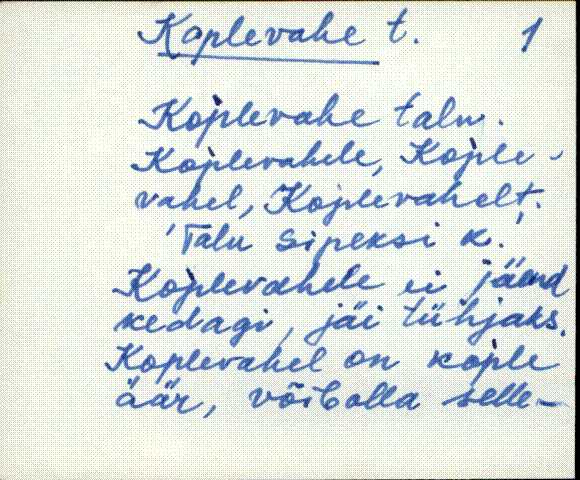 Koplevahe t. 1
Koplevahe talu.
Koplevahele, Kople-
vahel, Koplevahelt.
'Talu Sipeksi k.'
Koplevahele ei jäänd
kedagi, jäi tühjaks.
Koplevahel on kople
äär, võibolla selle-